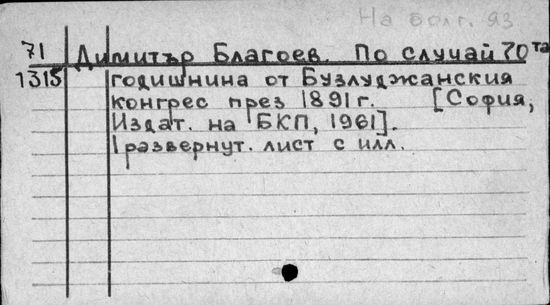 На болг. яз
71 Димитър Благоев. По случай 70та
1315 годишнина от Бузлуджанския
конгрес през 1891 г. [София,
Издат. на БКП, 1961].
1 развернут. лист с илл.